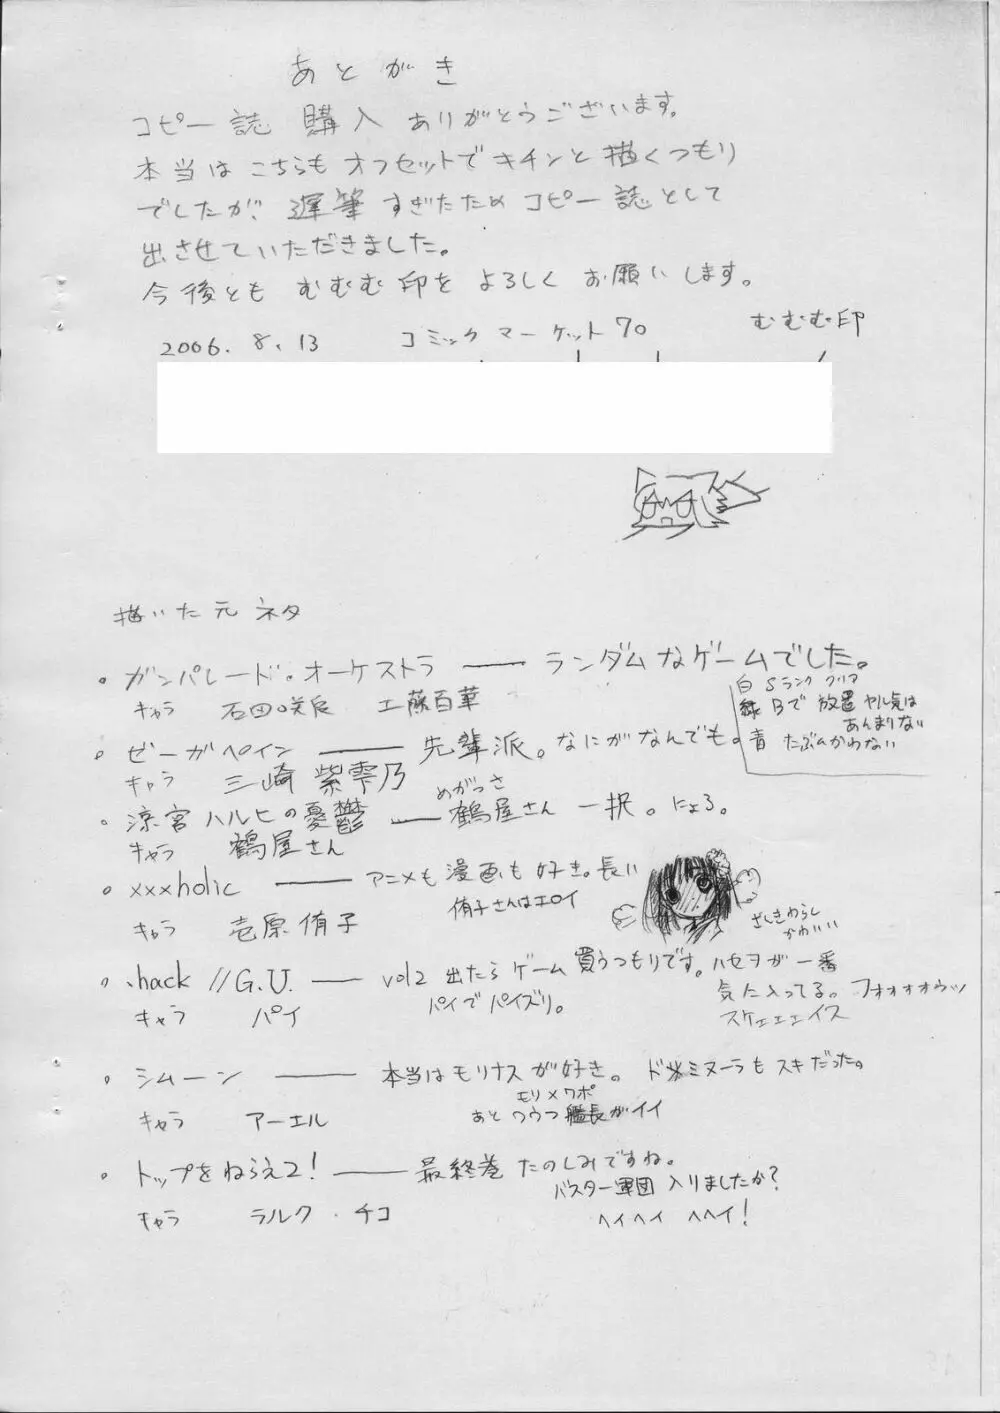 あとがき
コピー誌 購入 ありがとうございます。
本当は こちらも オフセットで キチンと 描くつもり
でしたが、遅筆 すぎたため コピー誌として
出させていただきました。
今後とも むむむ印を よろしく お願いします。
2006. 8. 13 コミックマーケット70 むむむ印
描いた元ネタ
・ガンパレード・オーケストラ ―― ランダムなゲームでした。
白 Sランク クリア
緑 Bで 放置 ヤル気は
あんまりない
青 たぶんかわない
キャラ 石田咲良 工藤百華
・ゼーガペイン ―― 先輩派。なにがなんでも。
キャラ 三崎 紫雫乃
・涼宮ハルヒの憂鬱 ―― 鶴屋さん 一択。にょろ。
めがっさ
キャラ 鶴屋さん
・xxxholic ―― アニメも 漫画も 好き。長い
侑子さんはエロイ
ざしきわらし
かわいい
キャラ 壱原 侑子
・.hack //G.U. ―― vol2 出たら ゲーム 買うつもりです。ハセヲが 一番
気に入ってる。フォォォォウッ
スケェェェイス
パイで パイズリ。
キャラ パイ
・シムーン ―― 本当は モリナス が 好き。ドミヌーラも スキだった。
モリ×ワポ
あと ワウフ 艦長がイイ
キャラ アーエル
・トップをねらえ2! ―― 最終巻 たのしみですね。
バスター軍団 入りましたか?
ヘイヘイ ヘヘイ!
キャラ ラルク・チコ